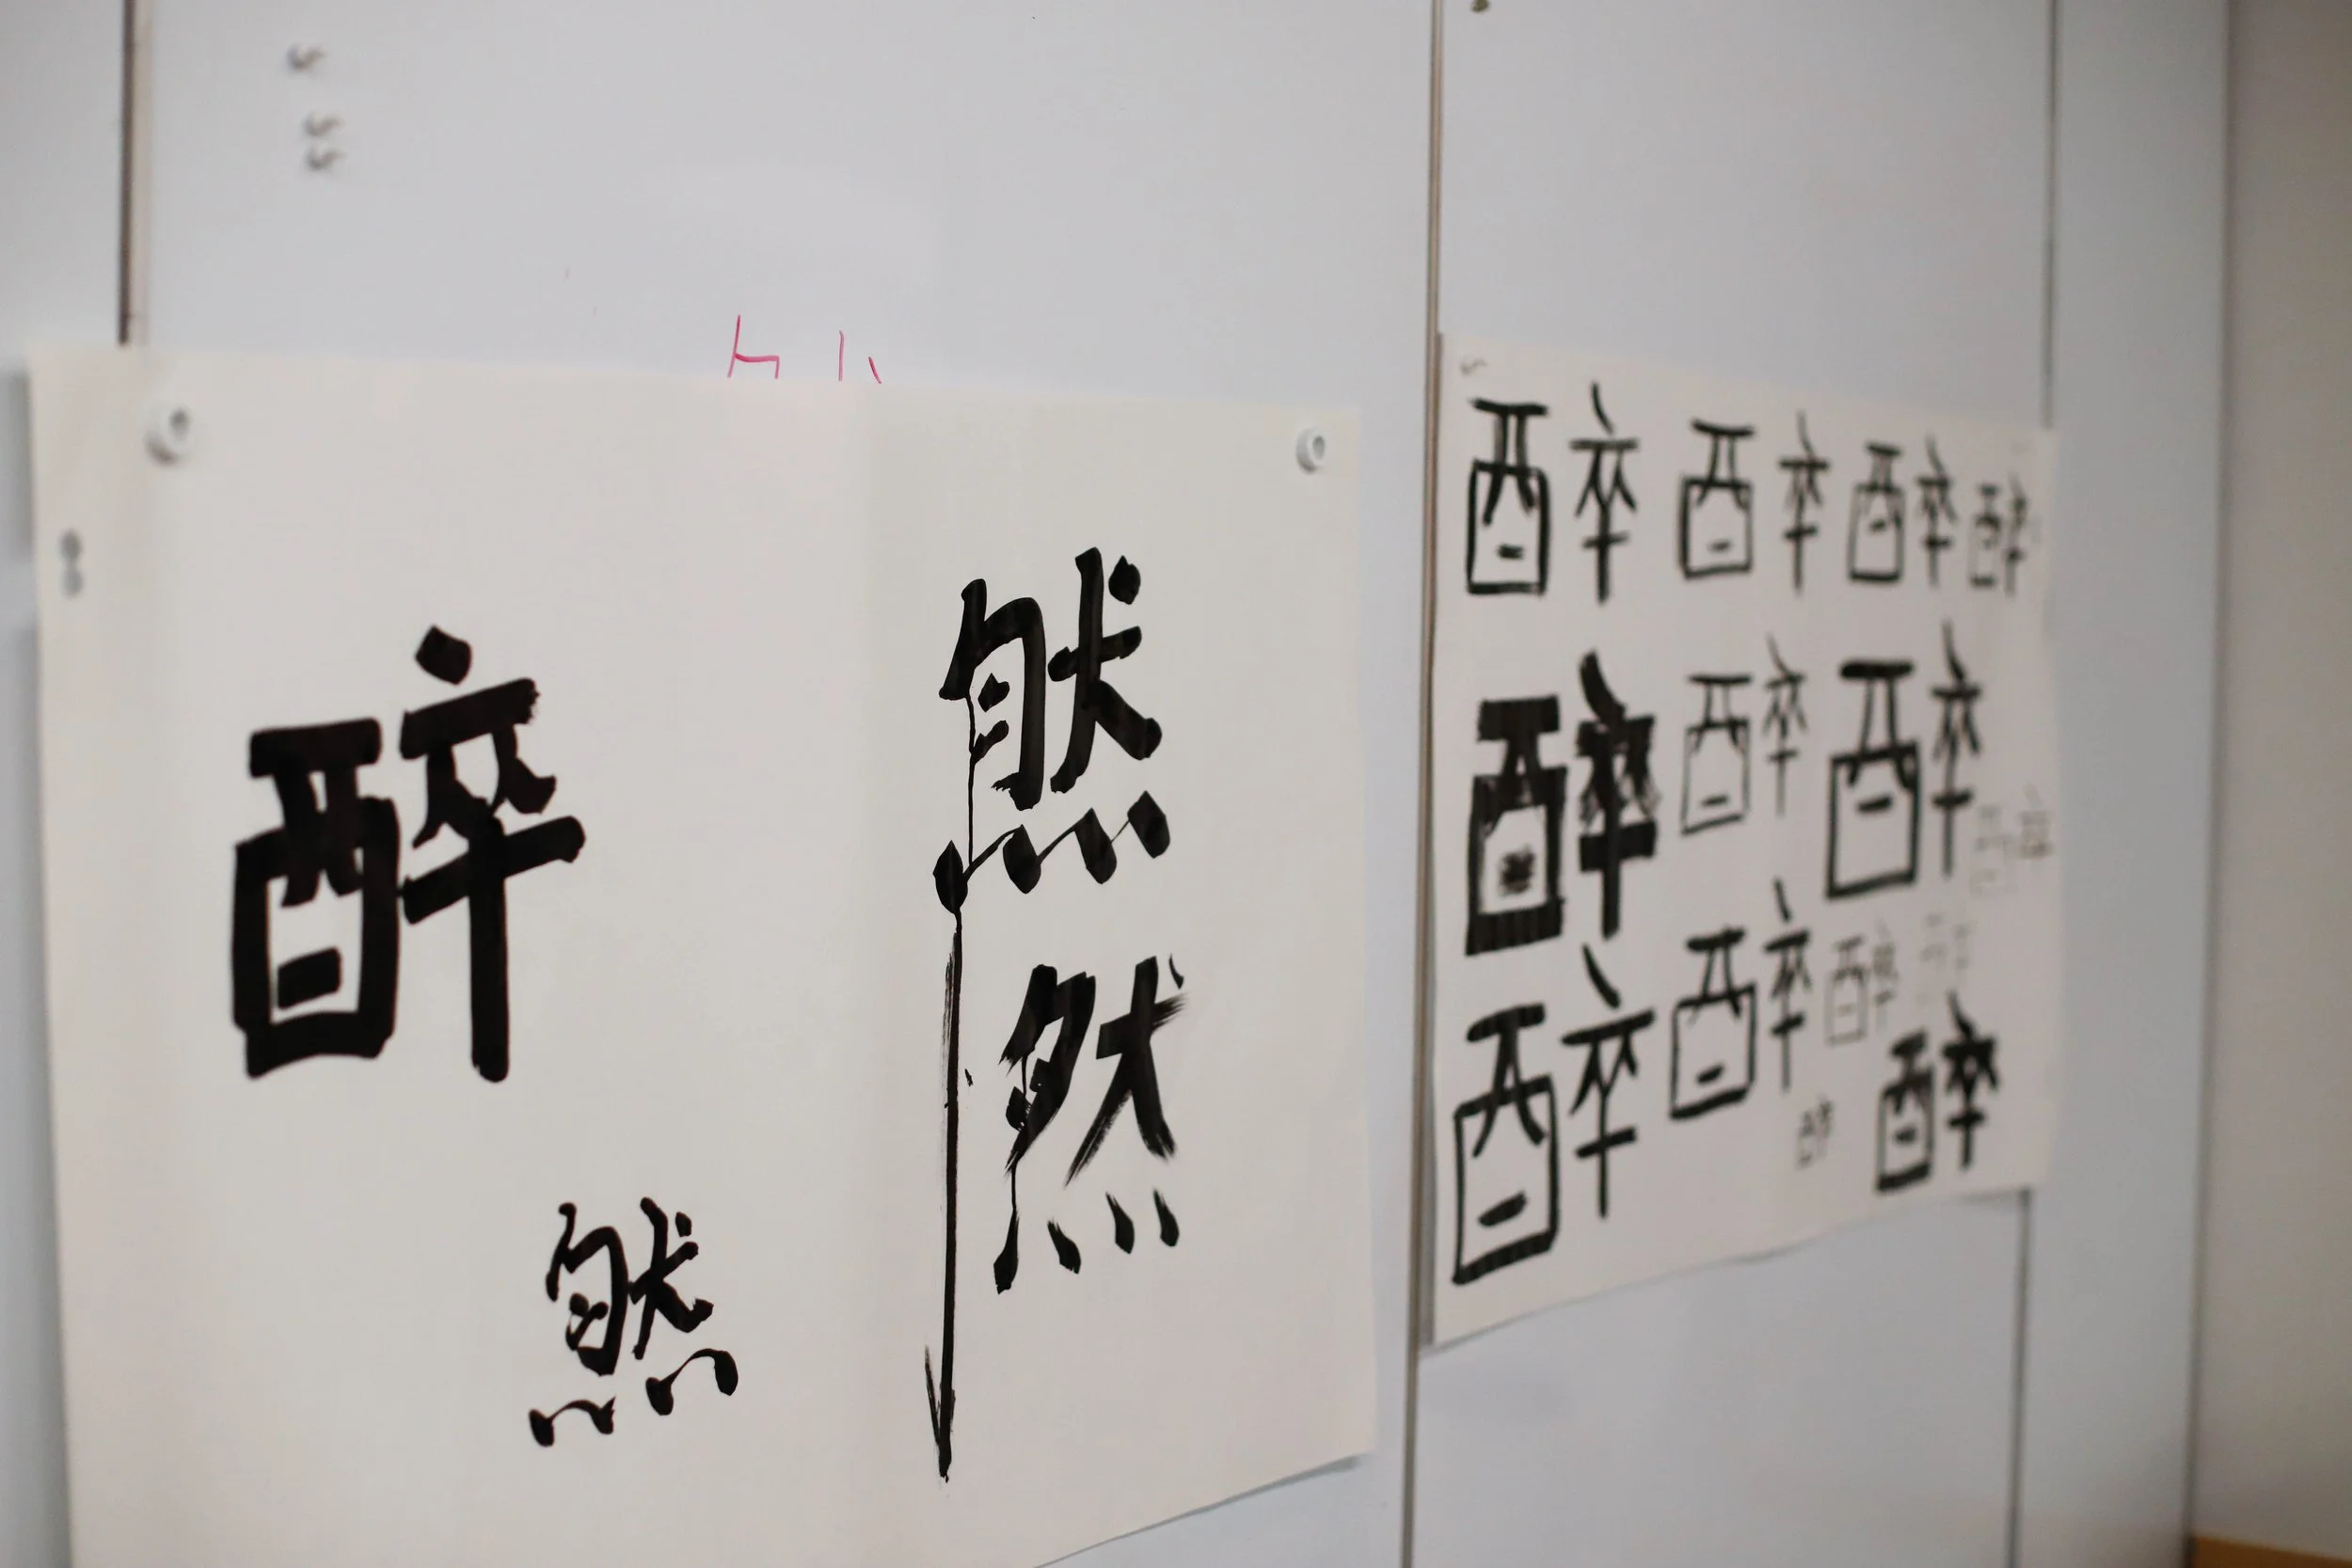 醉
然
然
然
醉 醉 醉 醉
醉 醉 醉
醉 醉 醉 醉
醉